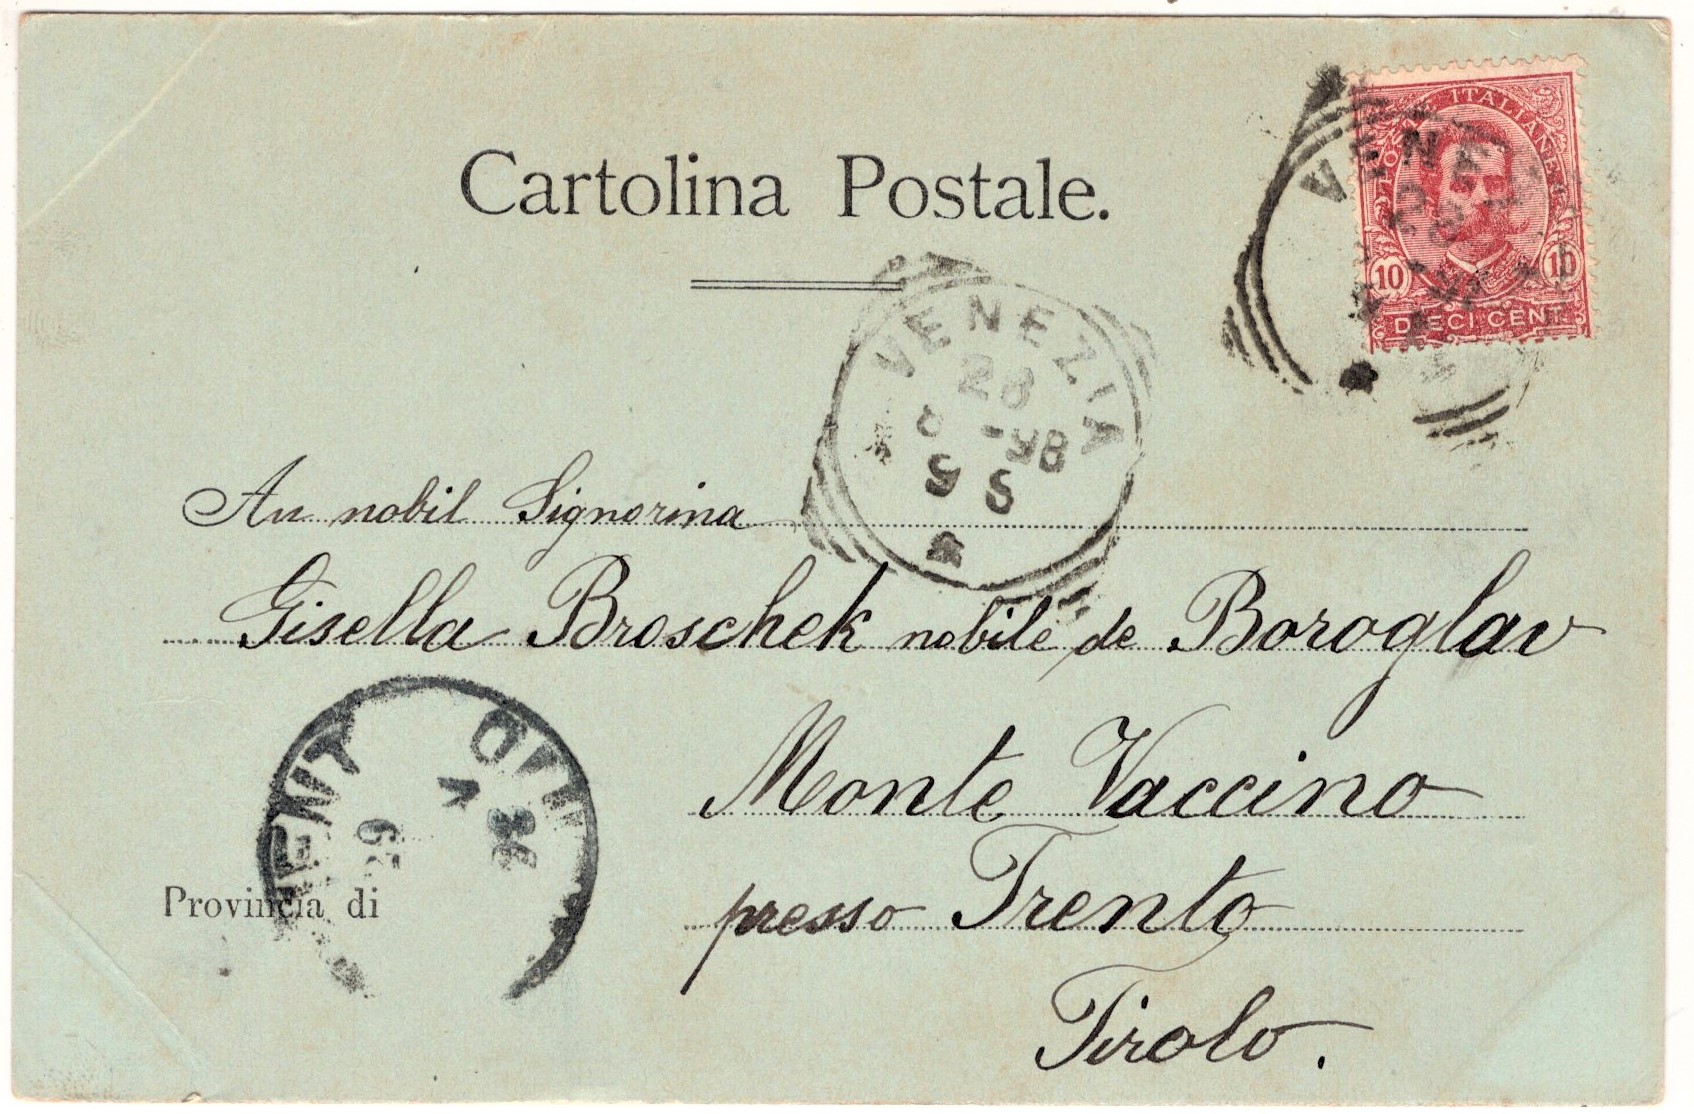 Cartolina Postale.
POSTE ITALIANE
10 10
DIECI CENT.
VENEZIA
28
8 -98
9 S
An nobil Signorina
Gisella Broschek nobile de Boroglav
Monte Vaccino
presso Trento
Tirolo.
Provincia di